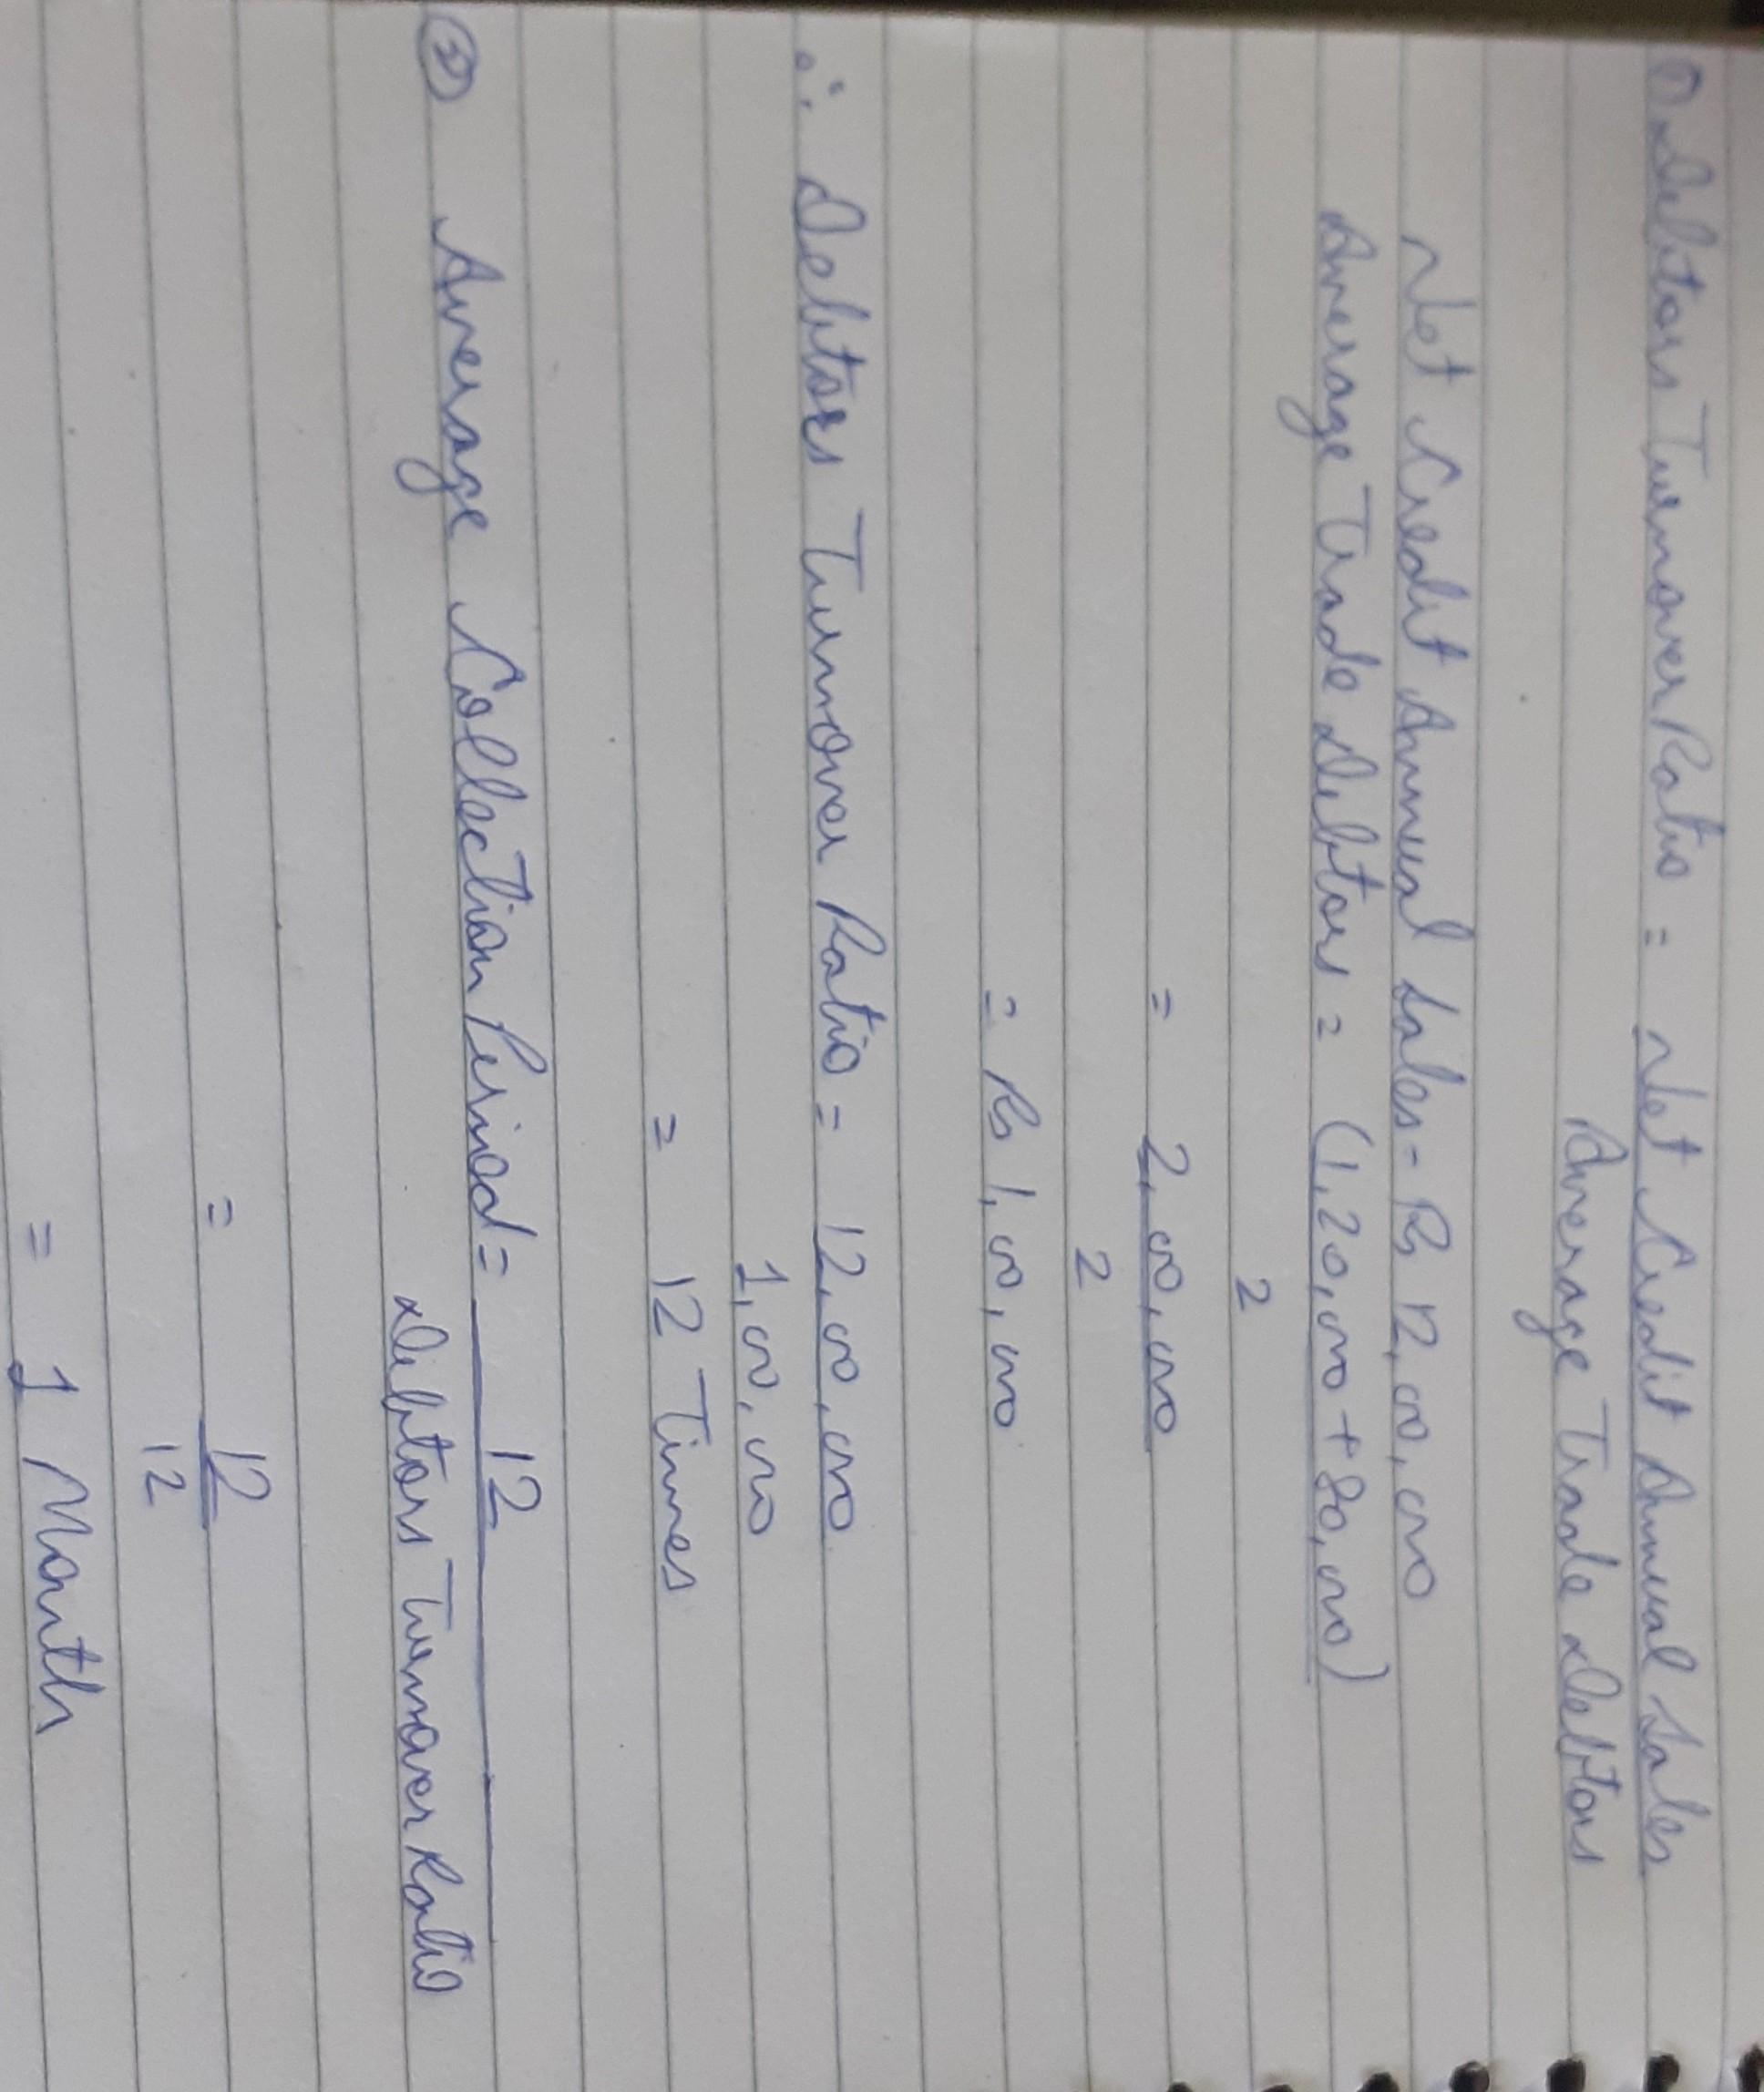 ① Debtors Turnover Ratio = Net Credit Annual Sales
Average Trade Debtors
Net Credit Annual Sales = Rs 12,00,000
Average Trade Debtors = (1,20,000 + 80,000)
2
= 2,00,000
2
= Rs 1,00,000
∴ Debtors Turnover Ratio = 12,00,000
1,00,000
= 12 Times
② Average Collection Period = 12
Debtors Turnover Ratio
= 12
12
= 1 Month